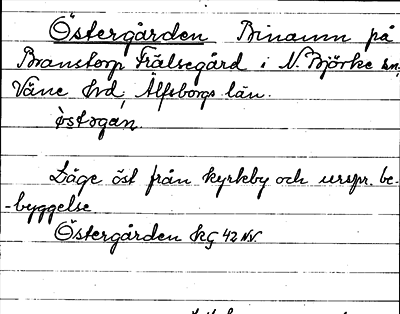 Östergården Binamn på
Branstorp Frälsegård i N. Björke sn,
Väne hd, Älfsborgs län.
östogan.
Läge öst från kyrkby och urspr. be-
-byggelse
Östergården KG 42 NV.